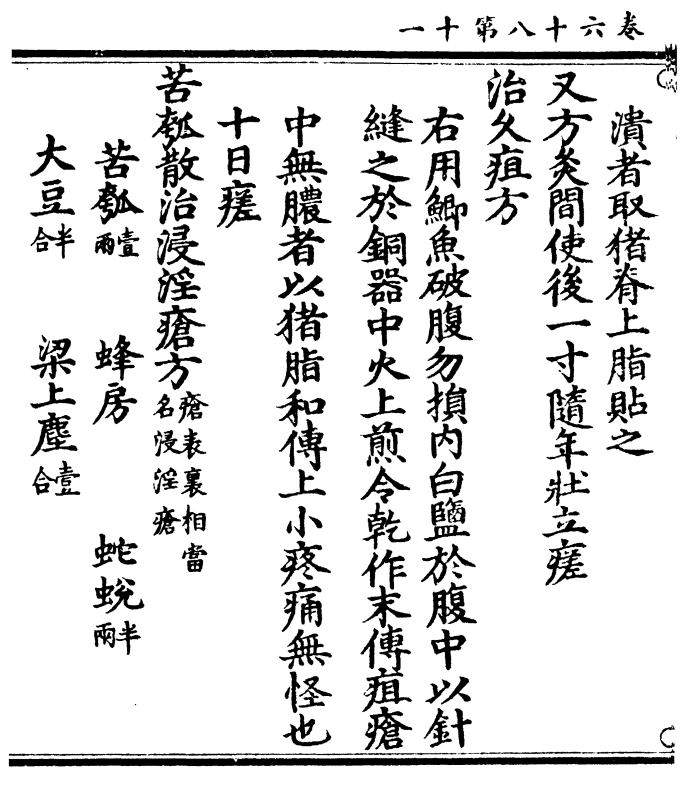 卷六十八第十一
潰者取猪脊上脂貼之
又方灸間使後一寸隨年壯立瘥
治久疽方
右用鯽魚破腹勿損内白鹽於腹中以針
縫之於銅器中火上煎令乾作末傅疽瘡
中無膿者以猪脂和傅上小疼痛無怪也
十日瘥
苦瓠散治浸淫瘡方瘡表裏相當名浸淫瘡
苦瓠壹兩 蜂房 蛇蛻半兩
大豆半合 梁上塵壹合